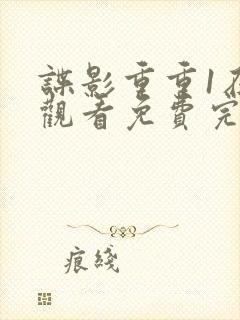 諜影重重1在
觀看免費完
痕綫